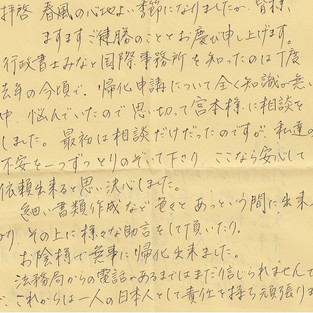 拝啓 春風の心地よい季節になりましたが、皆様、
ますますご健勝のこととお慶び申し上げます。
行政書士みなと国際事務所を知ったのは丁度
去年の今頃で、帰化申請について全く知識が無い
中、悩んでいたので思い切って宮本様に相談を
しました。最初は相談だけだったのですが、私達の
不安を一つずつとりのぞいて下さり、ここなら安心して
依頼出来ると思い決心しました。
細い書類作成など色々とあっという間に出来
り、その上に様々な助言をして頂いたり。
お陰様で無事に帰化出来ました。
法務局からの電話があるまではまだ信じられませんで
これからは一人の日本人として責任を持ち頑張りま